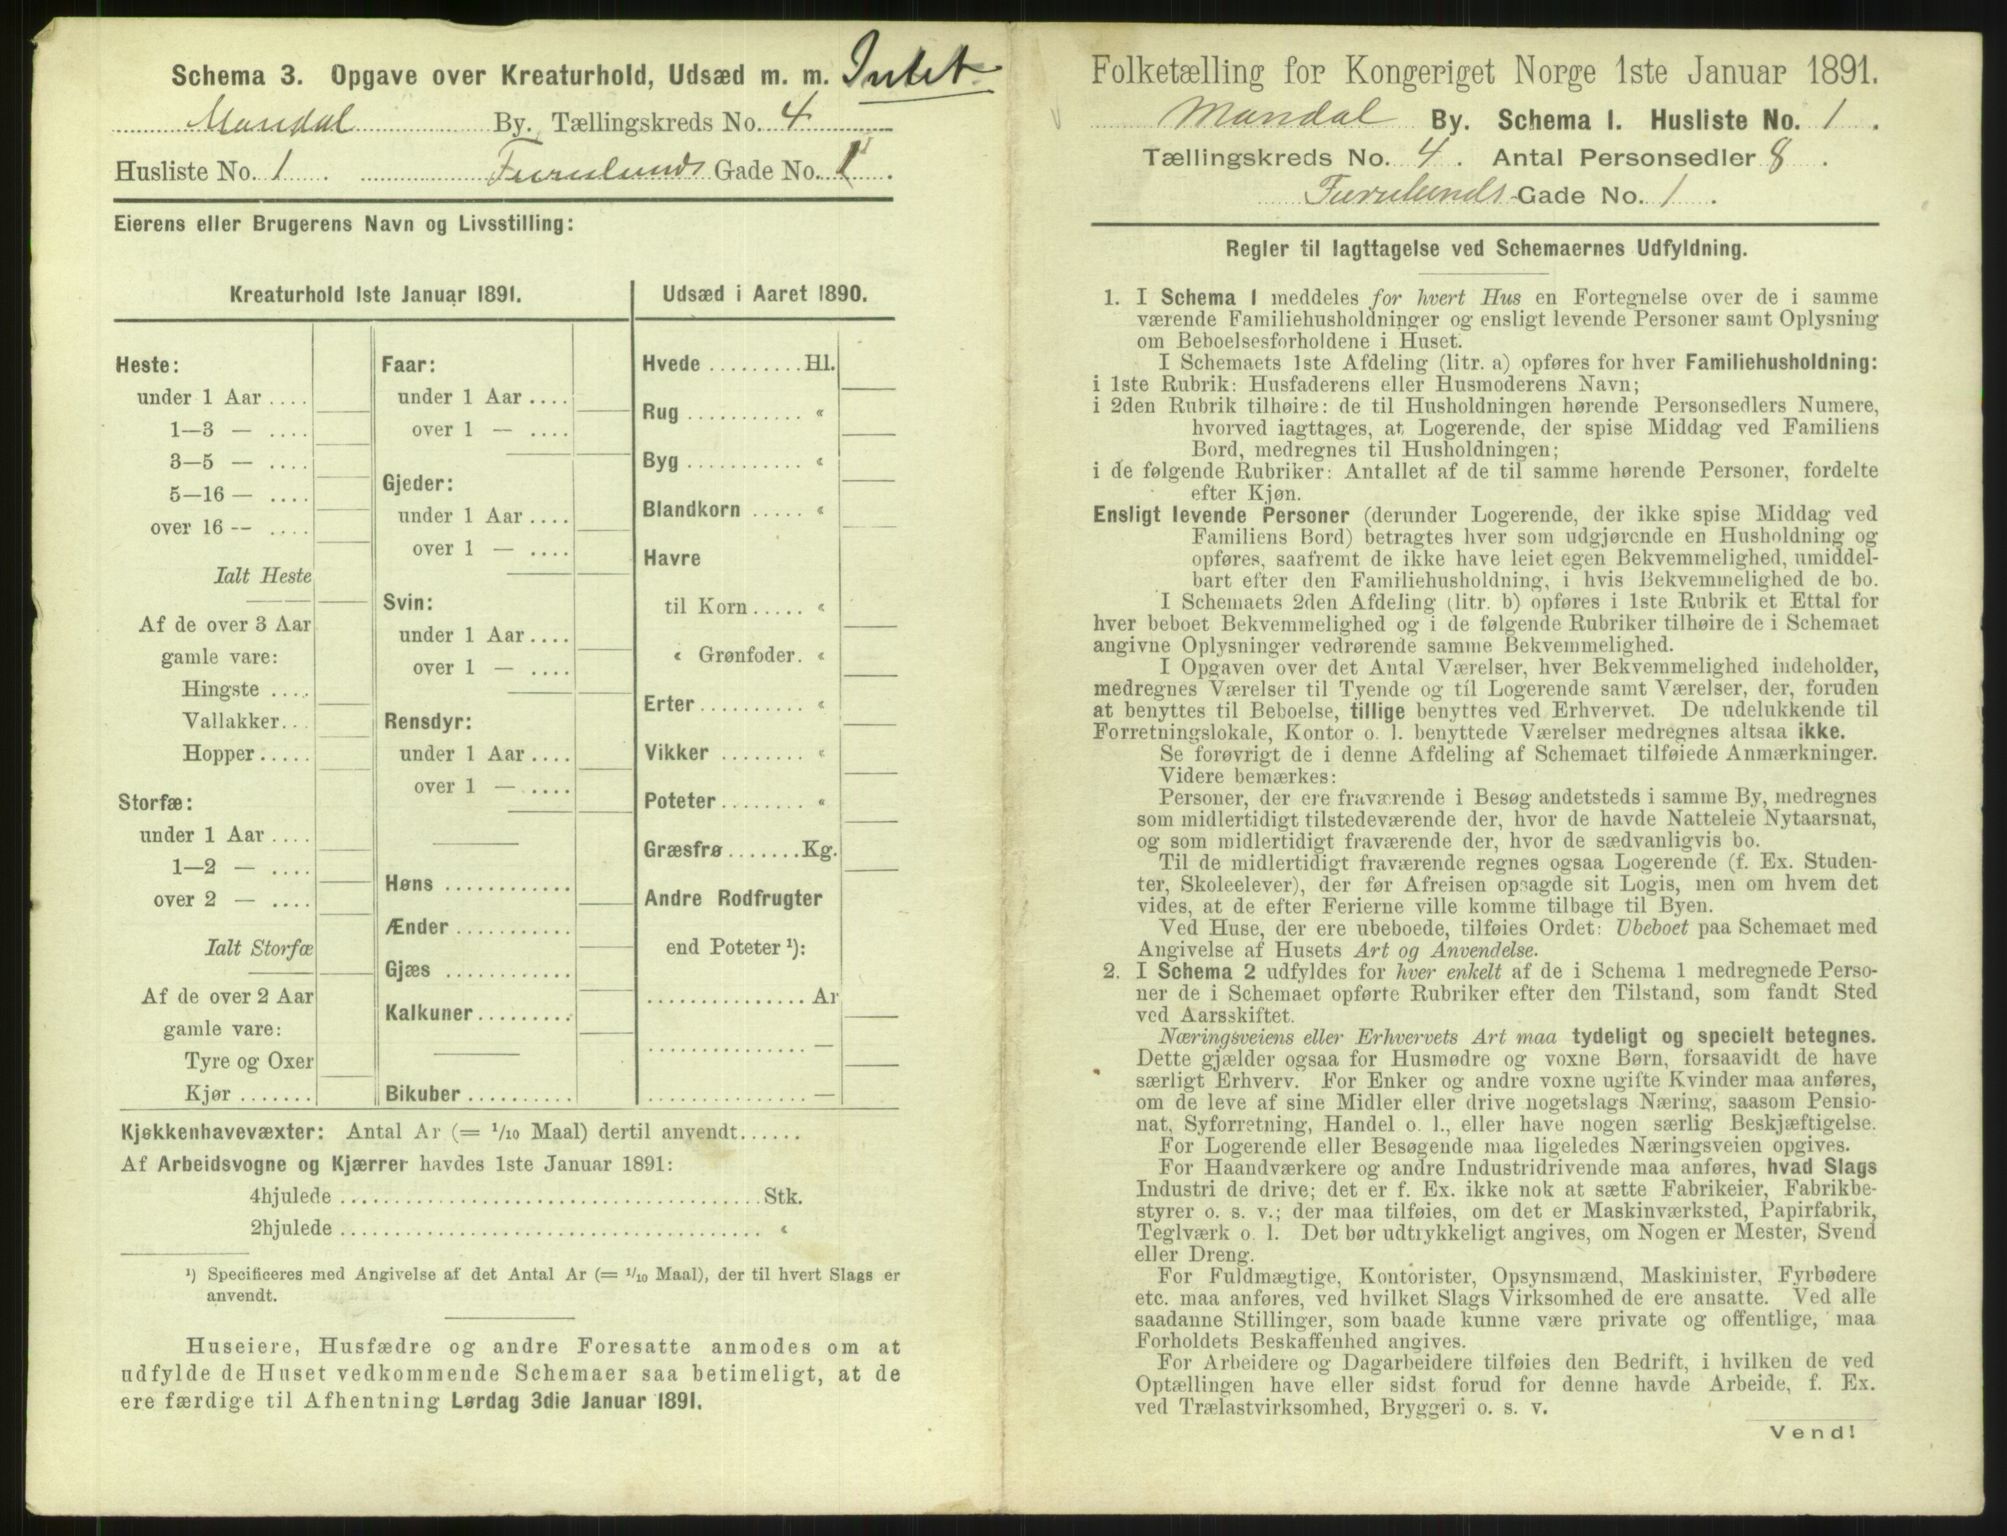 Schema 3. Opgave over Kreaturhold, Udsæd m. m. Intet
Mandal By. Tællingskreds No. 4
Husliste No. 1 . Furulunds Gade No. 1 .
Eierens eller Brugerens Navn og Livsstilling:
Kreaturhold 1ste Januar 1891.
Heste:
under 1 Aar ....
1—3 — ....
3—5 — ....
5—16 — ....
over 16 — ....
Ialt Heste
Af de over 3 Aar
gamle vare:
Hingste ....
Vallakker...
Hopper.....
Storfæ:
under 1 Aar ....
1—2 — ....
over 2 — ....
Ialt Storfæ
Af de over 2 Aar
gamle vare:
Tyre og Oxer
Kjør .......
Faar:
under 1 Aar ....
over 1 — ....
Gjeder:
under 1 Aar ....
over 1 — ....
Svin:
under 1 Aar ....
over 1 — ....
Rensdyr:
under 1 Aar ....
over 1 — ....
Høns ............
Ænder ...........
Gjæs ............
Kalkuner.........
Bikuber ..........
Udsæd i Aaret 1890.
Hvede .........Hl.
Rug ........... «
Byg ........... «
Blandkorn ..... «
Havre
til Korn ..... «
« Grønfoder. «
Erter.......... «
Vikker ........ «
Poteter........ «
Græsfrø .......Kg.
Andre Rodfrugter
end Poteter ¹):
............... Ar
............... —
............... —
Kjøkkenhavevæxter: Antal Ar (= 1/10 Maal) dertil anvendt......
Af Arbeidsvogne og Kjærrer havdes 1ste Januar 1891:
4hjulede ....................................... Stk.
2hjulede ....................................... «
¹) Specificeres med Angivelse af det Antal Ar (= 1/10 Maal), der til hvert Slags er
anvendt.
Huseiere, Husfædre og andre Foresatte anmodes om at
udfylde de Huset vedkommende Schemaer saa betimeligt, at de
ere færdige til Afhentning Lørdag 3die Januar 1891.
Folketælling for Kongeriget Norge 1ste Januar 1891.
Mandal By. Schema I. Husliste No. 1 .
Tællingskreds No. 4 . Antal Personsedler 8 .
Furulunds-Gade No. 1 .
Regler til Iagttagelse ved Schemaernes Udfyldning.
1. I Schema 1 meddeles for hvert Hus en Fortegnelse over de i samme
værende Familiehusholdninger og ensligt levende Personer samt Oplysning
om Beboelsesforholdene i Huset.
I Schemaets 1ste Afdeling (litr. a) opføres for hver Familiehusholdning:
i 1ste Rubrik: Husfaderens eller Husmoderens Navn;
i 2den Rubrik tilhøire: de til Husholdningen hørende Personsedlers Numere,
hvorved iagttages, at Logerende, der spise Middag ved Familiens
Bord, medregnes til Husholdningen;
i de følgende Rubriker: Antallet af de til samme hørende Personer, fordelte
efter Kjøn.
Ensligt levende Personer (derunder Logerende, der ikke spise Middag ved
Familiens Bord) betragtes hver som udgjørende en Husholdning og
opføres, saafremt de ikke have leiet egen Bekvemmelighed, umiddel-
bart efter den Familiehusholdning, i hvis Bekvemmelighed de bo.
I Schemaets 2den Afdeling (litr. b) opføres i 1ste Rubrik et Ettal for
hver beboet Bekvemmelighed og i de følgende Rubriker tilhøire de i Schemaet
angivne Oplysninger vedrørende samme Bekvemmelighed.
I Opgaven over det Antal Værelser, hver Bekvemmelighed indeholder,
medregnes Værelser til Tyende og til Logerende samt Værelser, der, foruden
at benyttes til Beboelse, tillige benyttes ved Erhvervet. De udelukkende til
Forretningslokale, Kontor o. l. benyttede Værelser medregnes altsaa ikke.
Se forøvrigt de i denne Afdeling af Schemaet tilføiede Anmærkninger.
Videre bemærkes:
Personer, der ere fraværende i Besøg andetsteds i samme By, medregnes
som midlertidigt tilstedeværende der, hvor de havde Natteleie Nytaarsnat,
og som midlertidigt fraværende der, hvor de sædvanligvis bo.
Til de midlertidigt fraværende regnes ogsaa Logerende (f. Ex. Studen-
ter, Skoleelever), der før Afreisen opsagde sit Logis, men om hvem det
vides, at de efter Ferierne ville komme tilbage til Byen.
Ved Huse, der ere ubeboede, tilføies Ordet: Ubeboet paa Schemaet med
Angivelse af Husets Art og Anvendelse.
2. I Schema 2 udfyldes for hver enkelt af de i Schema 1 medregnede Perso-
ner de i Schemaet opførte Rubriker efter den Tilstand, som fandt Sted
ved Aarsskiftet.
Næringsveiens eller Erhvervets Art maa tydeligt og specielt betegnes.
Dette gjælder ogsaa for Husmødre og voxne Børn, forsaavidt de have
særligt Erhverv. For Enker og andre voxne ugifte Kvinder maa anføres,
om de leve af sine Midler eller drive nogetslags Næring, saasom Pensio-
nat, Syforretning, Handel o. l., eller have nogen særlig Beskjæftigelse.
For Logerende eller Besøgende maa ligeledes Næringsveien opgives.
For Haandværkere og andre Industridrivende maa anføres, hvad Slags
Industri de drive; det er f. Ex. ikke nok at sætte Fabrikeier, Fabrikbe-
styrer o. s. v.; der maa tilføies, om det er Maskinværksted, Papirfabrik,
Teglværk o. l. Det bør udtrykkeligt angives, om Nogen er Mester, Svend
eller Dreng.
For Fuldmægtige, Kontorister, Opsynsmænd, Maskinister, Fyrbødere
etc. maa anføres, ved hvilket Slags Virksomhed de ere ansatte. Ved alle
saadanne Stillinger, som baade kunne være private og offentlige, maa
Forholdets Beskaffenhed angives.
For Arbeidere og Dagarbeidere tilføies den Bedrift, i hvilken de ved
Optællingen have eller sidst forud for denne havde Arbeide, f. Ex.
ved Trælastvirksomhed, Bryggeri o. s. v.
Vend!